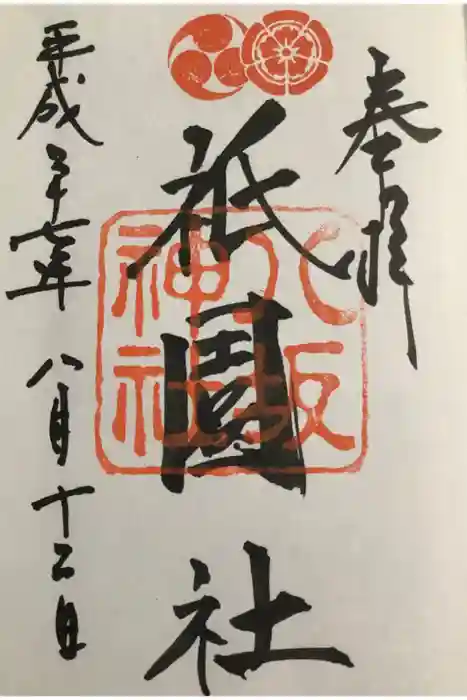 奉拝
祇園社
八坂
神社
平成二十七年 八月十二日